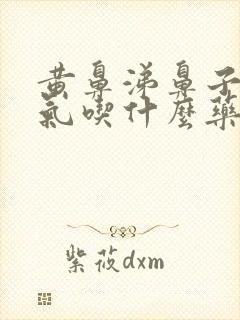 黄鼻涕鼻子
氣喫什麼藥
紫莜dxm